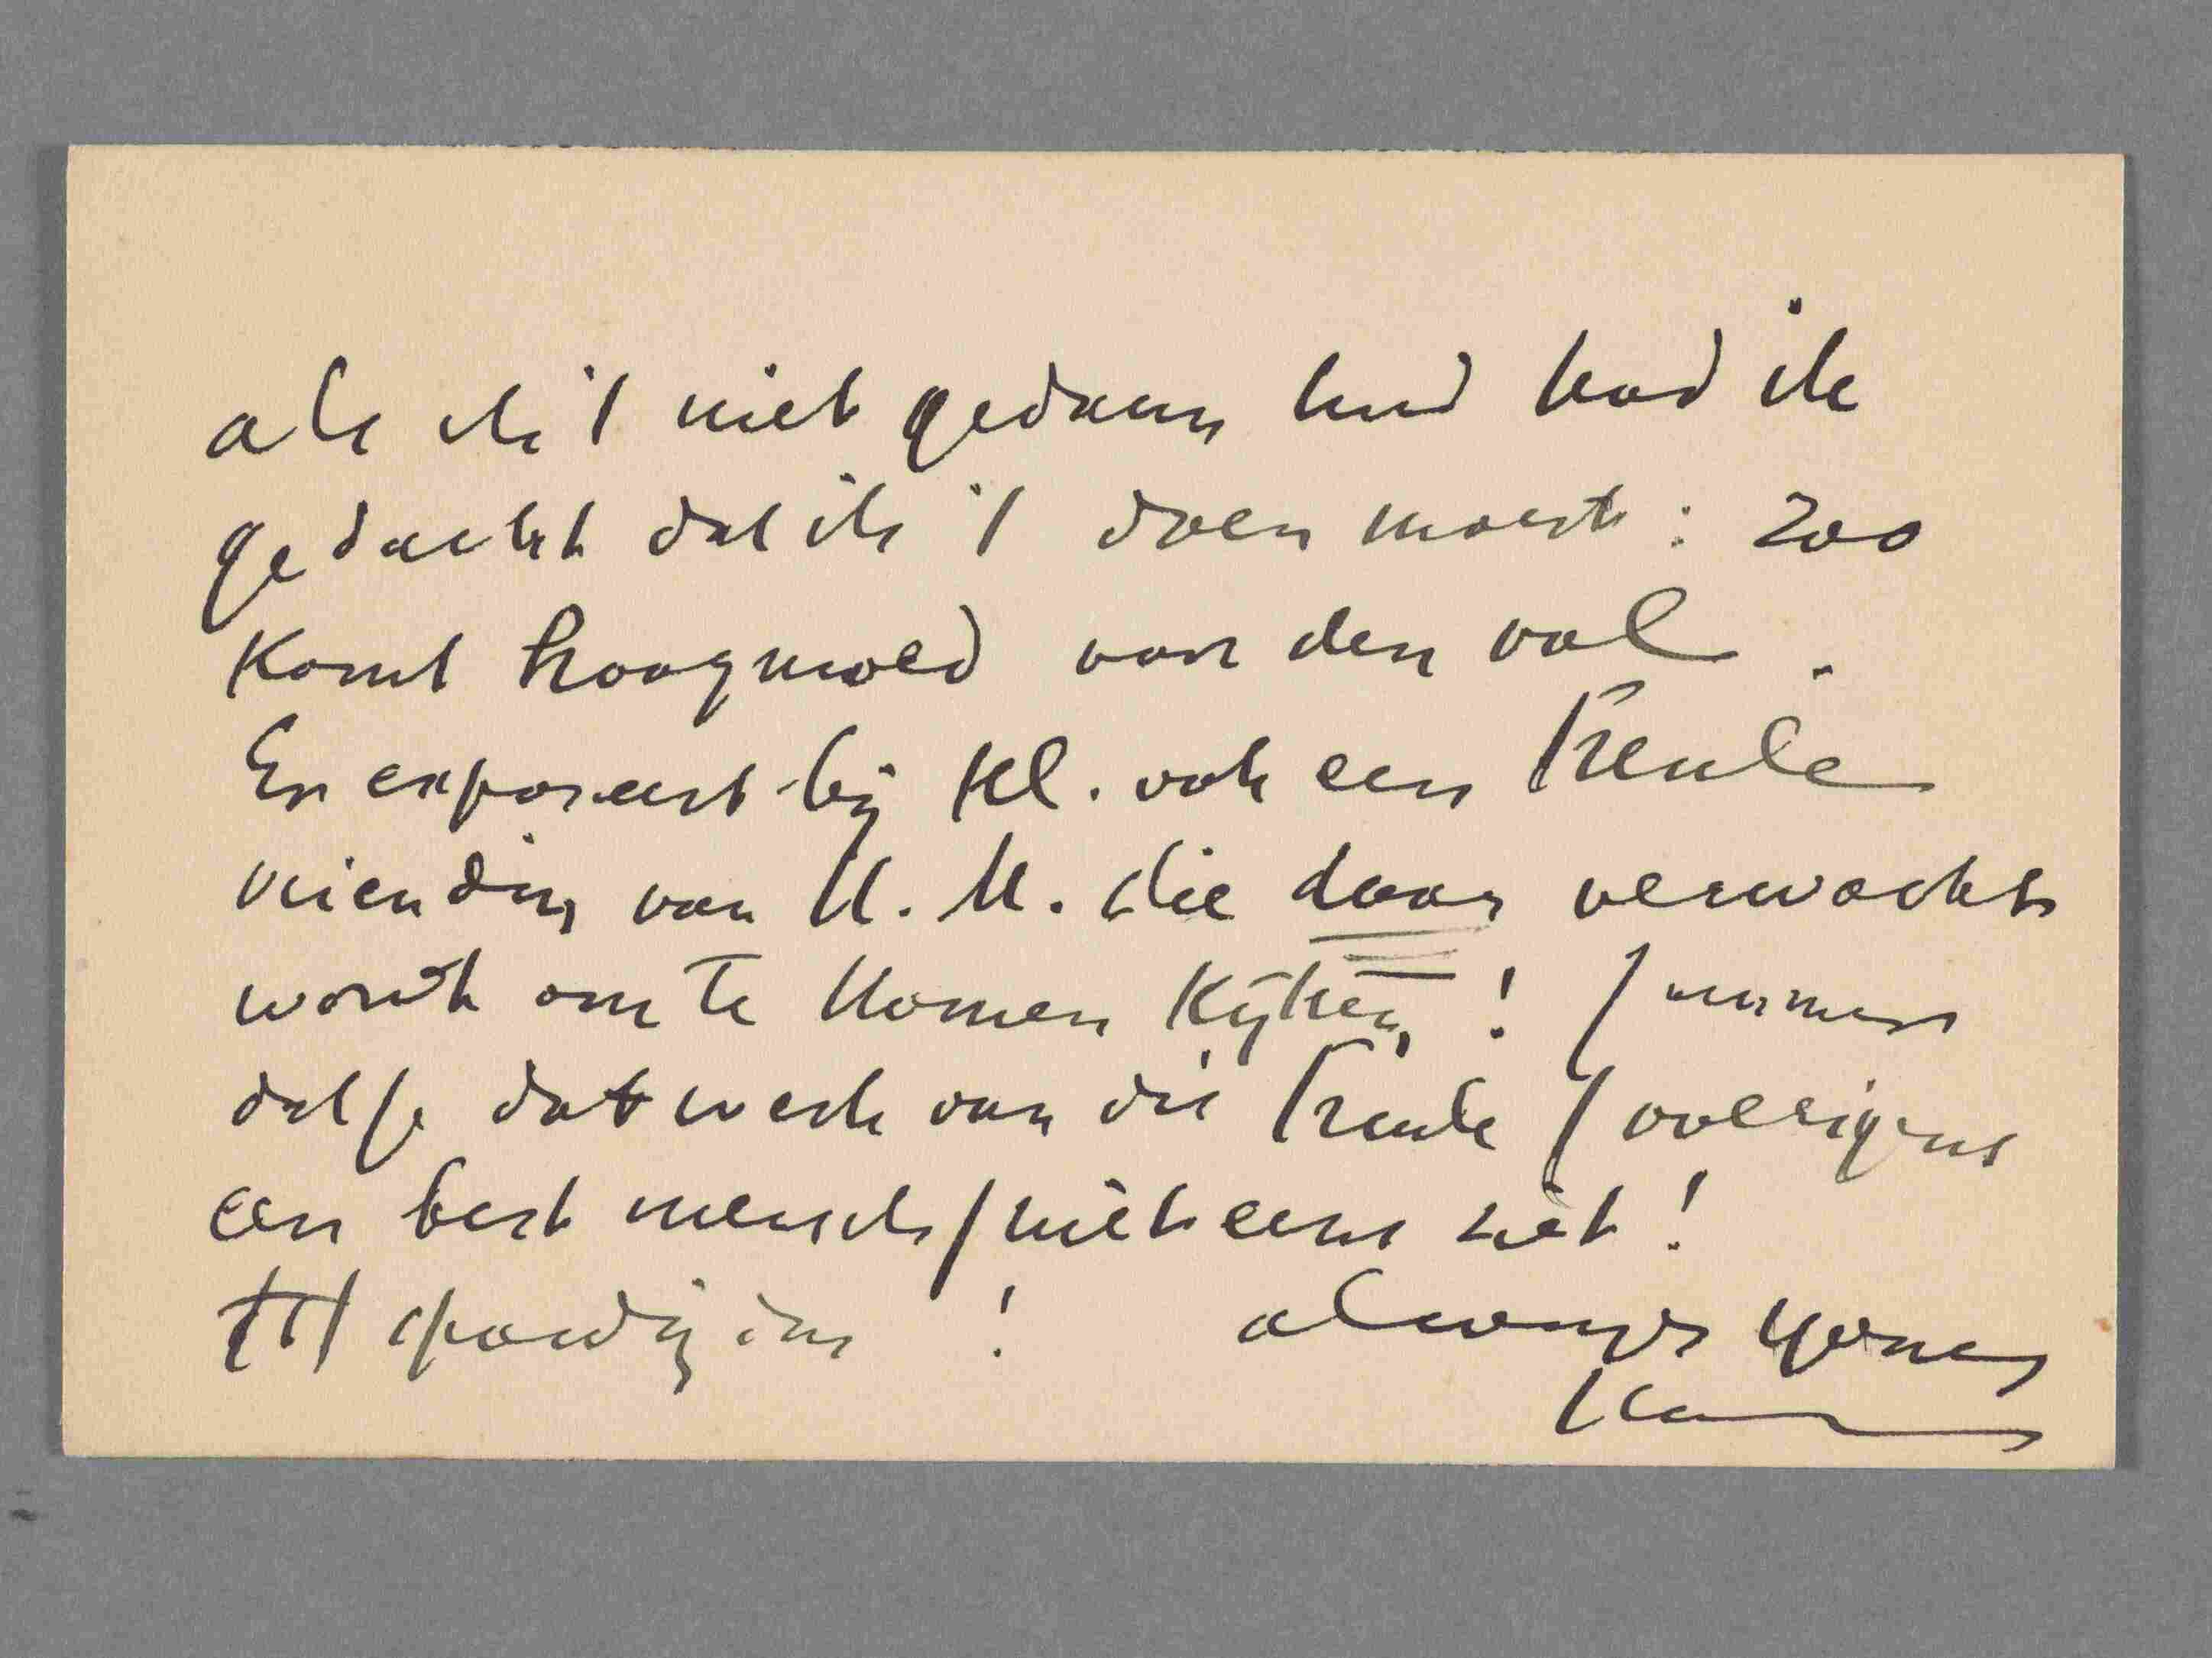 als ik 't niet gedaan had had ik
gedacht dat ik 't doen moest : zoo
komt hoogmoed voor den val .
Er exposeert bij Kl. ook een Freule
vriendin van H. M. die daar verwacht
wordt om te komen kijken ! Jammer
dat je dat werk van die Freule / overigens
een best mensch / niet eens ziet !
tot spoedig dus ! always yours